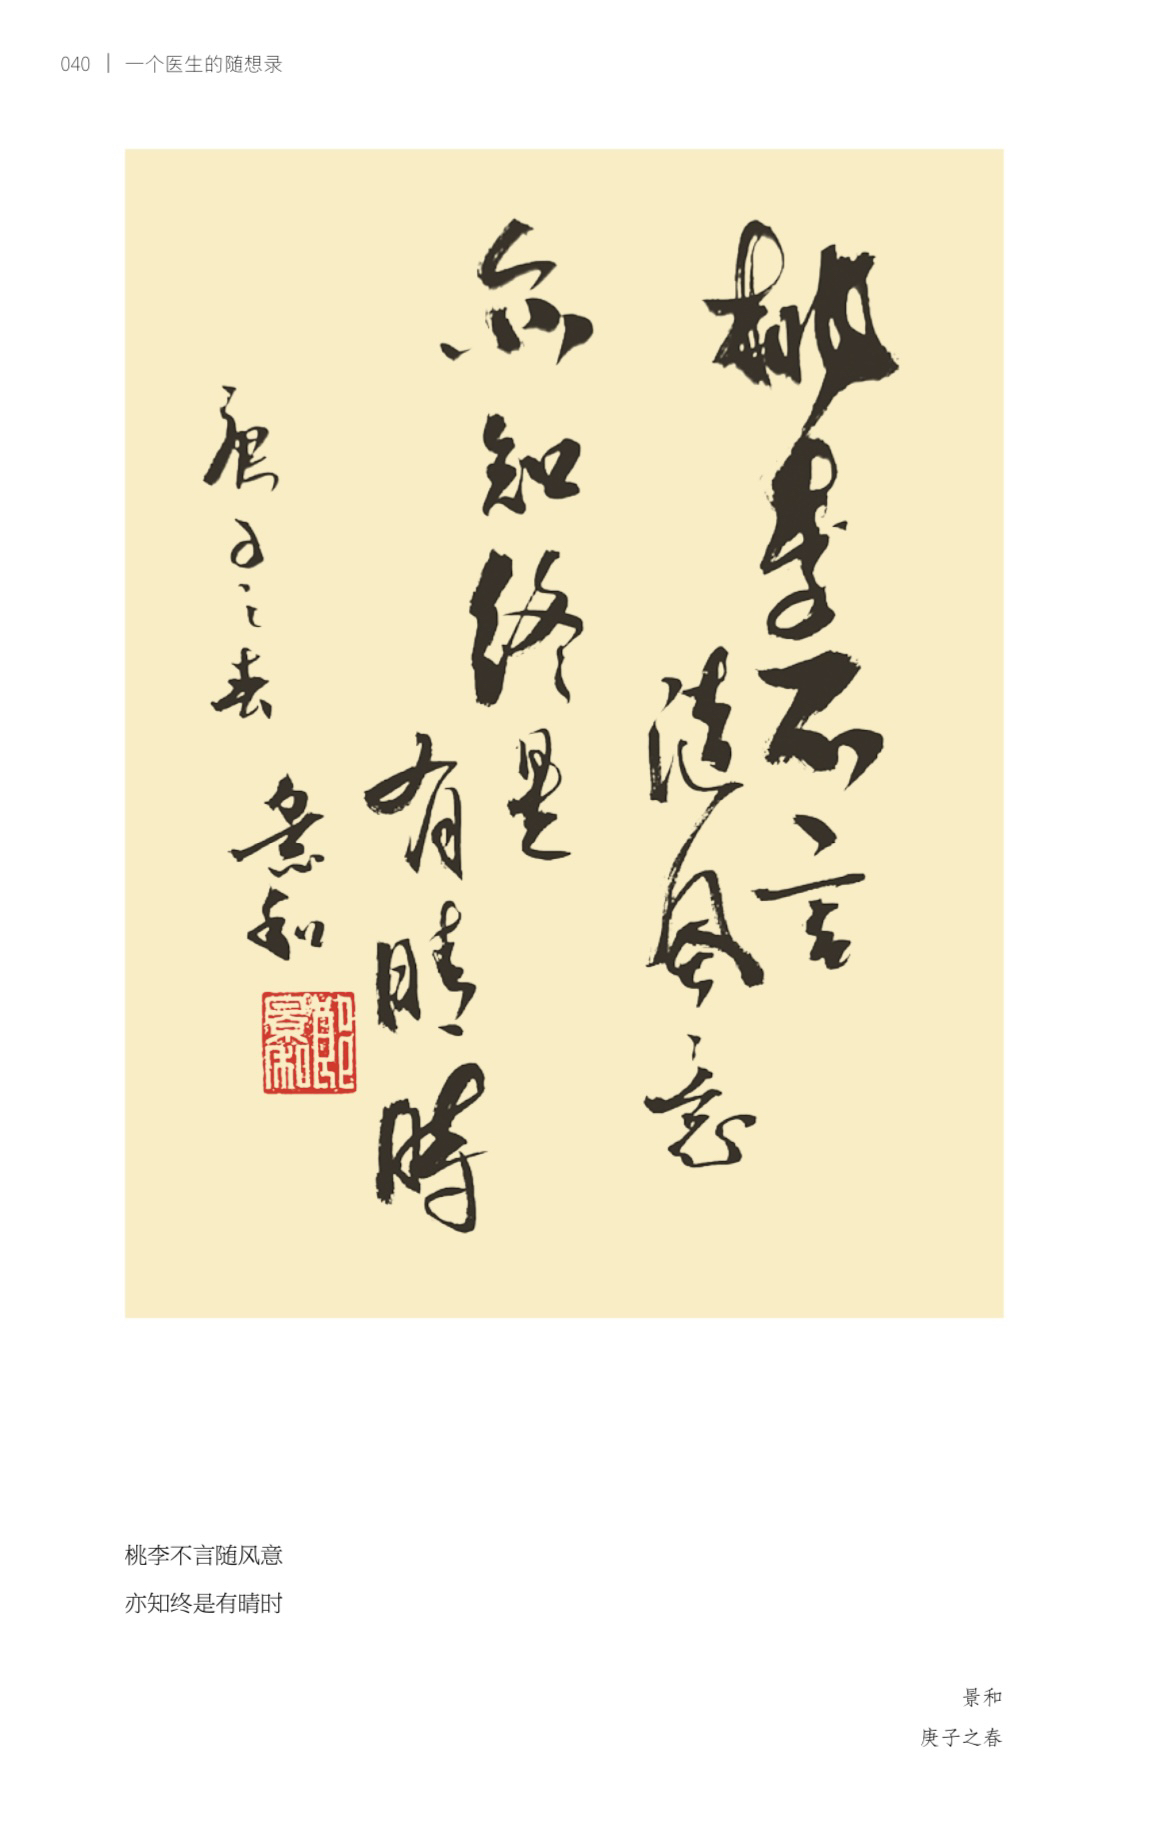 040 | 一个医生的随想录
桃李不言
随风意
亦知终是
有晴時
庚子之春
景和
郎景和印
桃李不言随风意
亦知终是有晴时
景和
庚子之春